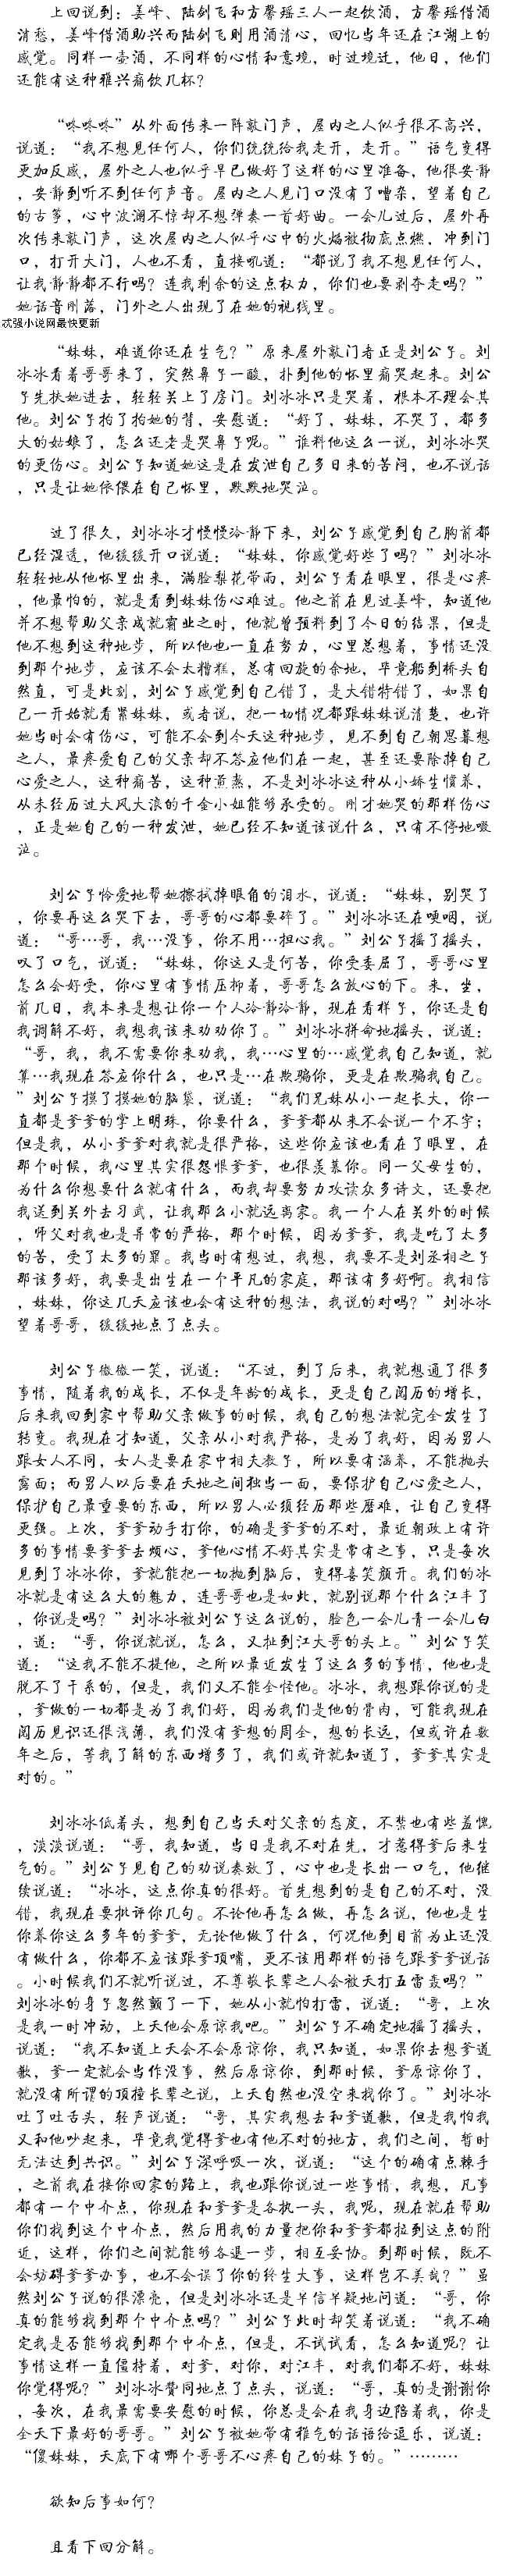 上回说到：姜峰、陆剑飞和方馨瑶三人一起饮酒，方馨瑶借酒
消愁，姜峰借酒助兴而陆剑飞则用酒清心，回忆当年还在江湖上的
感觉。同样一壶酒，不同样的心情和意境，时过境迁，他日，他们
还能有这种雅兴痛饮几杯？
“咚咚咚”从外面传来一阵敲门声，屋内之人似乎很不高兴，
说道：“我不想见任何人，你们统统给我走开，走开。”语气变得
更加反感，屋外之人也似乎早已做好了这样的心里准备，他很安静
，安静到听不到任何声音。屋内之人见门口没有了嘈杂，望着自己
的古筝，心中波澜不惊却不想弹奏一首好曲。一会儿过后，屋外再
次传来敲门声，这次屋内之人似乎心中的火焰被彻底点燃，冲到门
口，打开大门，人也不看，直接吼道：“都说了我不想见任何人，
让我静静都不行吗？连我剩余的这点权力，你们也要剥夺走吗？”
她话音刚落，门外之人出现了在她的视线里。
忒强小说网最快更新
“妹妹，难道你还在生气？”原来屋外敲门者正是刘公子。刘
冰冰看着哥哥来了，突然鼻子一酸，扑到他的怀里痛哭起来。刘公
子先扶她进去，轻轻关上了房门。刘冰冰只是哭着，根本不理会其
他。刘公子拍了拍她的背，安慰道：“好了，妹妹，不哭了，都多
大的姑娘了，怎么还老是哭鼻子呢。”谁料他这么一说，刘冰冰哭
的更伤心。刘公子知道她这是在发泄自己多日来的苦闷，也不说话
，只是让她依偎在自己怀里，默默地哭泣。
过了很久，刘冰冰才慢慢冷静下来，刘公子感觉到自己胸前都
已经湿透，他缓缓开口说道：“妹妹，你感觉好些了吗？”刘冰冰
轻轻地从他怀里出来，满脸梨花带雨，刘公子看在眼里，很是心疼
，他最怕的，就是看到妹妹伤心难过。他之前在见过姜峰，知道他
并不想帮助父亲成就霸业之时，他就曾预料到了今日的结果，但是
他不想到这种地步，所以他也一直在努力，心里总想着，事情还没
到那个地步，应该不会太糟糕，总有回旋的余地，毕竟船到桥头自
然直，可是此刻，刘公子感觉到自己错了，是大错特错了，如果自
己一开始就看紧妹妹，或者说，把一切情况都跟妹妹说清楚，也许
她当时会有伤心，可能不会到今天这种地步，见不到自己朝思暮想
之人，最疼爱自己的父亲却不答应他们在一起，甚至还要除掉自己
心爱之人，这种痛苦，这种煎熬，不是刘冰冰这种从小娇生惯养，
从未经历过大风大浪的千金小姐能够承受的。刚才她哭的那样伤心
，正是她自己的一种发泄，她已经不知道该说什么，只有不停地啜
泣。
刘公子怜爱地帮她擦拭掉眼角的泪水，说道：“妹妹，别哭了
，你要再这么哭下去，哥哥的心都要碎了。”刘冰冰还在哽咽，说
道：“哥…哥，我…没事，你不用…担心我。”刘公子摇了摇头，
叹了口气，说道：“妹妹，你这又是何苦，你受委屈了，哥哥心里
怎么会好受，你心里有事情压抑着，哥哥怎么放心的下。来，坐，
前几日，我本来是想让你一个人冷静冷静，现在看样子，你还是自
我调解不好，我想我该来劝劝你了。”刘冰冰拼命地摇头，说道：
“哥，我，我不需要你来劝我，我…心里的…感觉我自己知道，就
算…我现在答应你什么，也只是…在欺骗你，更是在欺骗我自己。
”刘公子摸了摸她的脑袋，说道：“我们兄妹从小一起长大，你一
直都是爹爹的掌上明珠，你要什么，爹爹都从来不会说一个不字；
但是我，从小爹爹对我就是很严格，这些你应该也看在了眼里，在
那个时候，我心里其实很怨恨爹爹，也很羡慕你。同一父母生的，
为什么你想要什么就有什么，而我却要努力攻读众多诗文，还要把
我送到关外去习武，让我那么小就远离家。我一个人在关外的时候
，师父对我也是异常的严格，那个时候，因为爹爹，我是吃了太多
的苦，受了太多的罪。我当时有想过，我想，我要不是刘丞相之子
那该多好，我要是出生在一个平凡的家庭，那该有多好啊。我相信
，妹妹，你这几天应该也会有这种的想法，我说的对吗？”刘冰冰
望着哥哥，缓缓地点了点头。
刘公子微微一笑，说道：“不过，到了后来，我就想通了很多
事情，随着我的成长，不仅是年龄的成长，更是自己阅历的增长，
后来我回到家中帮助父亲做事的时候，我自己的想法就完全发生了
转变。我现在才知道，父亲从小对我严格，是为了我好，因为男人
跟女人不同，女人是要在家中相夫教子，所以要有涵养，不能抛头
露面；而男人以后要在天地之间独当一面，要保护自己心爱之人，
保护自己最重要的东西，所以男人必须经历那些磨难，让自己变得
更强。上次，爹爹动手打你，的确是爹爹的不对，最近朝政上有许
多的事情要爹爹去烦心，爹他心情不好其实是常有之事，只是每次
见到了冰冰你，爹就能把一切抛到脑后，变得喜笑颜开。我们的冰
冰就是有这么大的魅力，连哥哥也是如此，就别说那个什么江丰了
，你说是吗？”刘冰冰被刘公子这么说的，脸色一会儿青一会儿白
，道：“哥，你说就说，怎么，又扯到江大哥的头上。”刘公子笑
道：“这我不能不提他，之所以最近发生了这么多的事情，他也是
脱不了干系的，但是，我们又不能全怪他。冰冰，我想跟你说的是
，爹做的一切都是为了我们好，因为我们是他的骨肉，可能我现在
阅历见识还很浅薄，我们没有爹想的周全，想的长远，但或许在数
年之后，等我了解的东西增多了，我们或许就知道了，爹爹其实是
对的。”
刘冰冰低着头，想到自己当天对父亲的态度，不禁也有些羞愧
，淡淡说道：“哥，我知道，当日是我不对在先，才惹得爹后来生
气的。”刘公子见自己的劝说奏效了，心中也是长出一口气，他继
续说道：“冰冰，这点你真的很好。首先想到的是自己的不对，没
错，我现在要批评你几句。不论他再怎么做，再怎么说，他也是生
你养你这么多年的爹爹，无论他做了什么，何况他到目前为止还没
有做什么，你都不应该跟爹顶嘴，更不该用那样的语气跟爹爹说话
。小时候我们不就听说过，不尊敬长辈之人会被天打五雷轰吗？”
刘冰冰的身子忽然颤了一下，她从小就怕打雷，说道：“哥，上次
是我一时冲动，上天他会原谅我吧。”刘公子不确定地摇了摇头，
说道：“我不知道上天会不会原谅你，我只知道，如果你去想爹道
歉，爹一定就会当作没事，然后原谅你，到那时候，爹原谅你了，
就没有所谓的顶撞长辈之说，上天自然也没空来找你了。”刘冰冰
吐了吐舌头，轻声说道：“哥，其实我想去和爹道歉，但是我怕我
又和他吵起来，毕竟我觉得爹也有他不对的地方，我们之间，暂时
无法达到共识。”刘公子深呼吸一次，说道：“这个的确有点棘手
，之前我在接你回家的路上，我也跟你说过一些事情，我想，凡事
都有一个中介点，你现在和爹爹是各执一头，我呢，现在就在帮助
你们找到这个中介点，然后用我的力量把你和爹爹都拉到这点的附
近，这样，你们之间就能够各退一步，相互妥协。到那时候，既不
会妨碍爹爹办事，也不会误了你的终生大事，这样岂不美哉？”虽
然刘公子说的很漂亮，但是刘冰冰还是半信半疑地问道：“哥，你
真的能够找到那个中介点吗？”刘公子此时却笑着说道：“我不确
定我是否能够找到那个中介点，但是，不试试看，怎么知道呢？让
事情这样一直僵持着，对爹，对你，对江丰，对我们都不好，妹妹
你觉得呢？”刘冰冰赞同地点了点头，说道：“哥，真的是谢谢你
，每次，在我最需要安慰的时候，你总是会在我身边陪着我，你是
全天下最好的哥哥。”刘公子被她带有稚气的话语给逗乐，说道：
“傻妹妹，天底下有哪个哥哥不心疼自己的妹子的。”………
欲知后事如何？
且看下回分解。